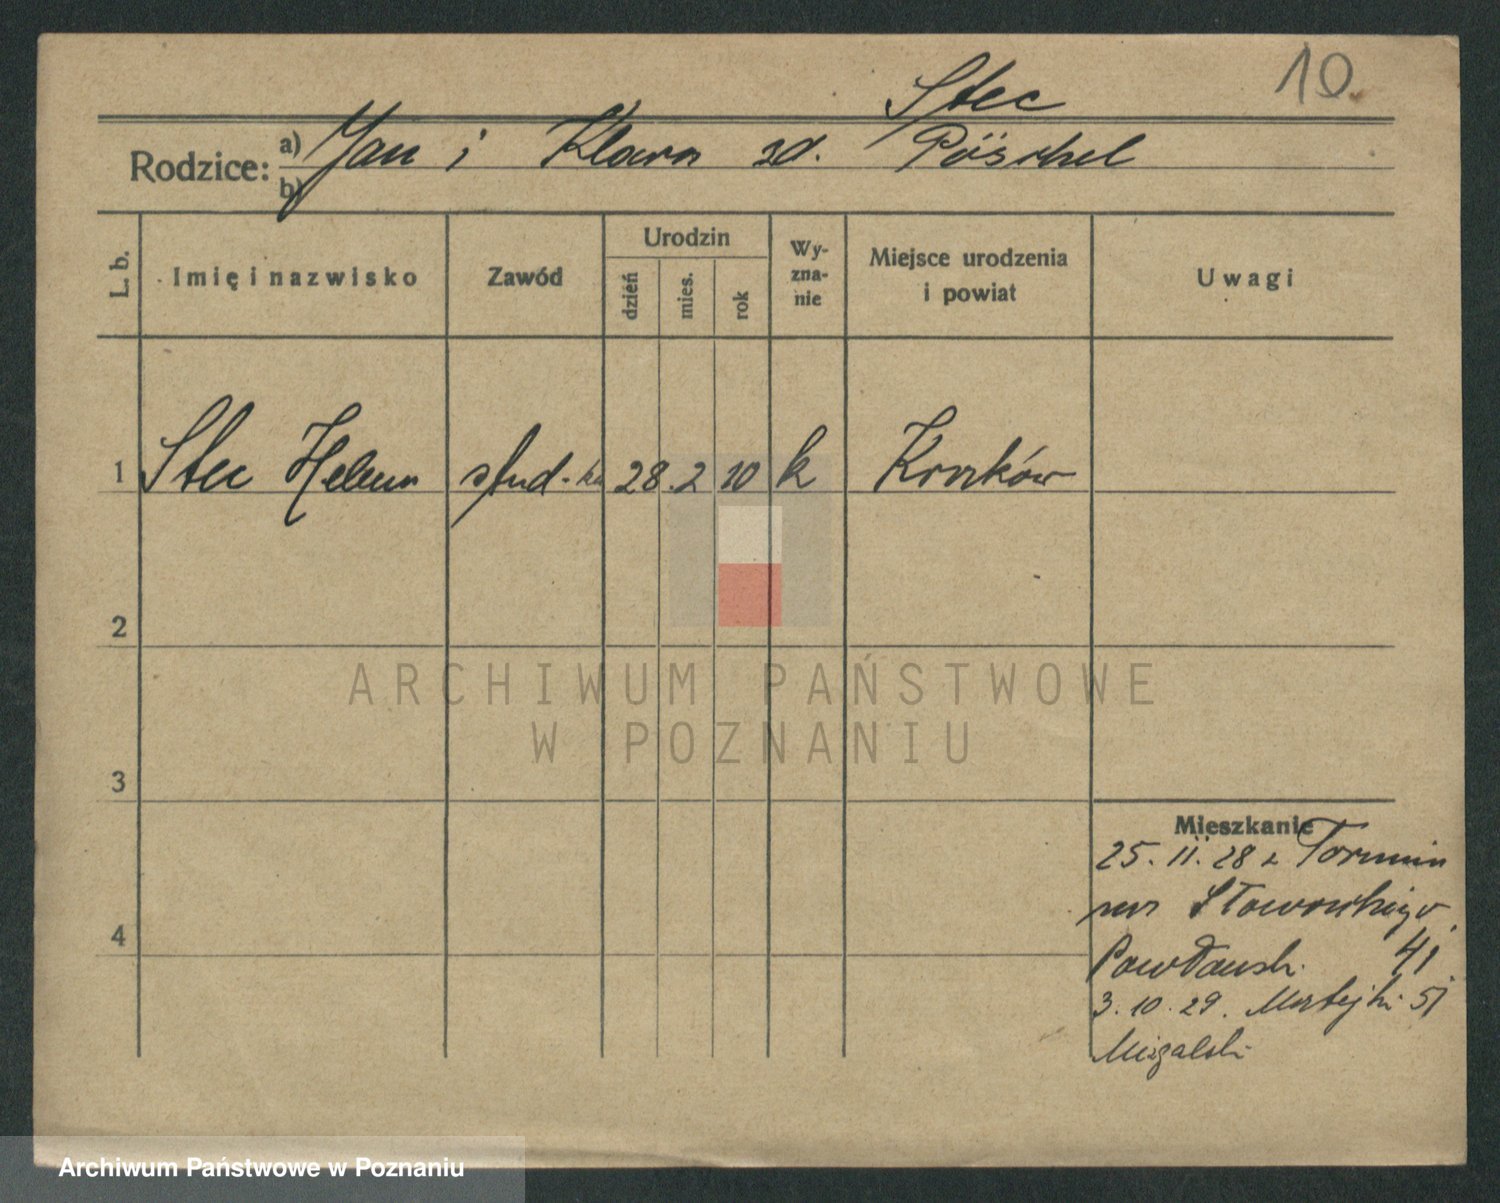 10.
Stec
Rodzice: a) Jan i Klara zd. Pöschel
b)
L. b.
Imię i nazwisko
Zawód
Urodzin
dzień
mies.
rok
Wy-
zna-
nie
Miejsce urodzenia
i powiat
Uwagi
1 Stec Helena stud-ka 28. 2 10 k Kraków
2
3
4
Mieszkanie
25. II. 28 z Torunia
na Słowackiego
41
3. 10. 29. Matejki 51
ARCHIWUM PAŃSTWOWE
W POZNANIU
Archiwum Państwowe w Poznaniu